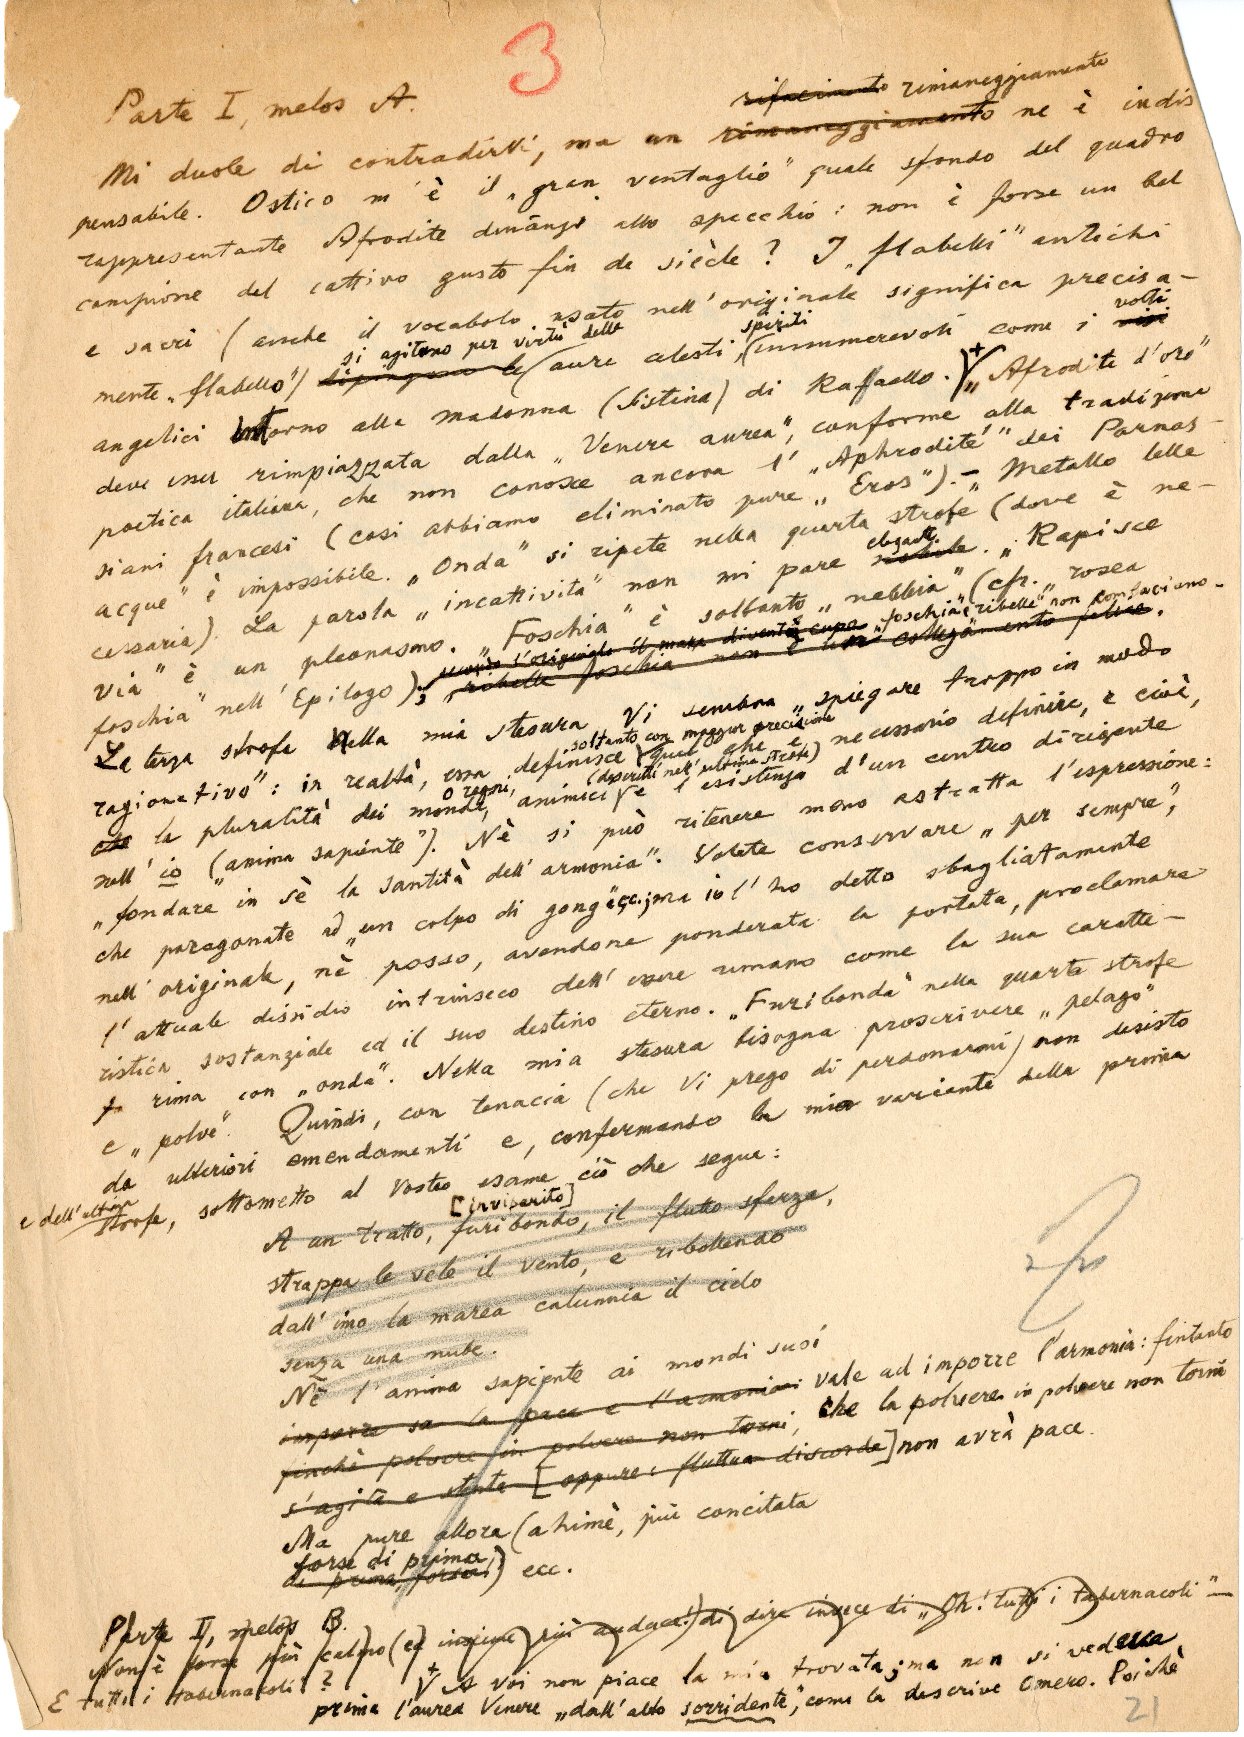 3
Parte I, melos A.
rifacimento rimaneggiamento
Mi duole di contradirVi, ma un rimaneggiamento ne è indis
pensabile. Ostico m'è il „gran ventaglio” quale sfondo del quadro
rappresentante Afrodite dinanzi allo specchio: non è forse un bel
campione del cattivo gusto fin de siècle? I „flabelli” antichi
e sacri (anche il vocabolo usato nell'originale significa precisa-
mente „flabello”) si agitano per virtù delle aure celesti, (innumerevoli spiriti come i volti
angelici intorno alla Madonna (Sistina) di Raffaello.) + „Afrodite d'oro”
deve esser rimpiazzata dalla „Venere aurea”, conforme alla tradizione
poetica italiana, che non conosce ancora l' „Aphrodité” dei Parnas-
siani francesi (così abbiamo eliminato pure „Eros”). – „Metallo delle
acque” è impossibile. „Onda” si ripete nella quarta strofe (dove è ne-
cessaria). La parola „incattivita” non mi pare nobile elegante. „Rapisce
via” è un pleonasmo. „Foschia” è soltanto „nebbia” (cfr. „rosea
foschia” nell'Epilogo); secondo l'originale il mare diventa cupo „foschia” e „ribelle” non confaciano-
„ribelle foschia non è un collegamento felice.
La terza strofe nella mia stesura Vi sembra „spiegare troppo in modo
ragionativo”: in realtà, essa definisce soltanto con maggior precisione quel che è necessario definire, e cioè,
che la pluralità dei mondi, o regni, animici (descritti nell'ultima strofe) e l'esistenza d'un centro dirigente
nell'io (anima sapiente”). Nè si può ritenere meno astratta l'espressione:
„fondare in sè la santità dell'armonia”. Volete conservare „per sempre”,
che paragonate ad „un colpo di gong” ecc.; ma io l'ho detto sbagliatamente
nell'originale, nè posso, avendone ponderata la portata, proclamare
l'attuale dissidio intrinseco dell'essere umano come la sua caratte-
ristica sostanziale ed il suo destino eterno. „Furibonda” nella quarta strofe
fa rima con „onda”. Nella mia stesura bisogna proscrivere „pelago”
e „polve”. Quindi, con tenacia (che Vi prego di perdonarmi) non desisto
da ulteriori emendamenti e, confermando la mia variante della prima
e dell'ultima strofe, sottometto al Vostro esame ciò che segue:
[inviperito]
A un tratto, furibondo, il flutto sferza,
strappa le vele il vento, e ribollendo
dall'imo la marea calunnia il cielo
senza una nube.
Nè l'anima sapiente ai mondi suoi
imporre sa la pace e l'armonia: vale ad imporre l'armonia: fintanto
finchè polvere in polvere non torni, che la polvere in polvere non torni
s'agita e stenta [oppure: fluttua discorde] non avrà pace.
Ma pure allora (ahimè, più concitata
forse di prima,
di prima, forse) ecc.
Parte II, melos B.
Non è forse più calmo (ed insieme più audace!) di dire invece di „Oh! tutti i tabernacoli” –
E tutti i tabernacoli?
+ A Voi non piace la mia trovata; ma non si vedeva
prima l'aurea Venere „dall'alto sorridente”, come la descrive Omero. Poichè
21